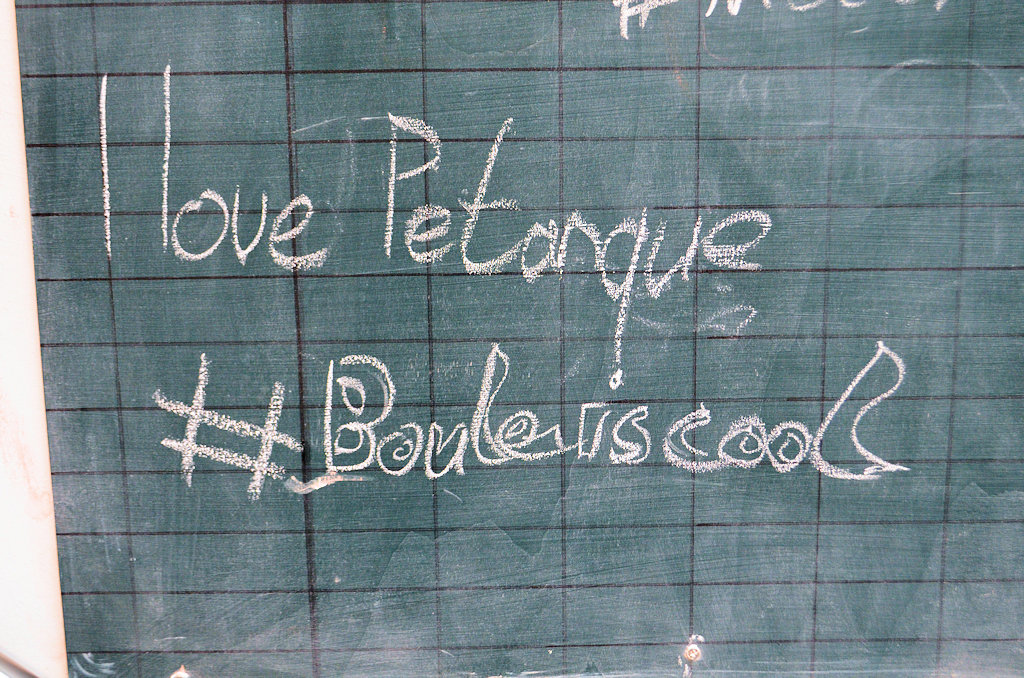 I love Petanque
#Bouleiscool